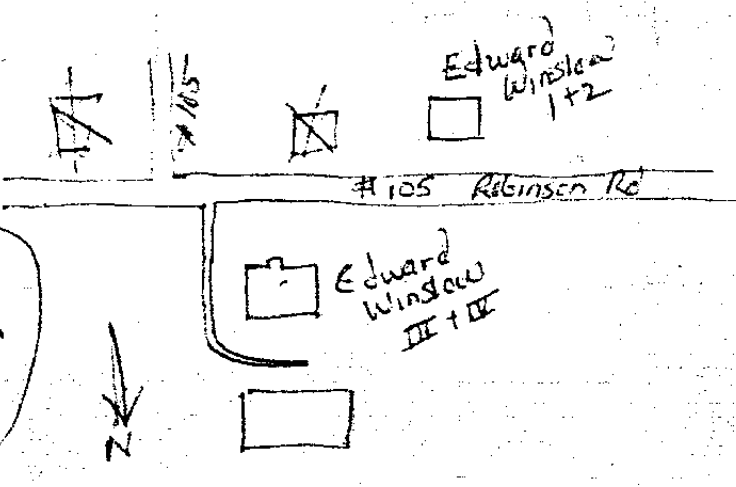 Edward
Winslow
1+2
#105
#105 Robinson Rd
Edward
Winslow
III + IV
N